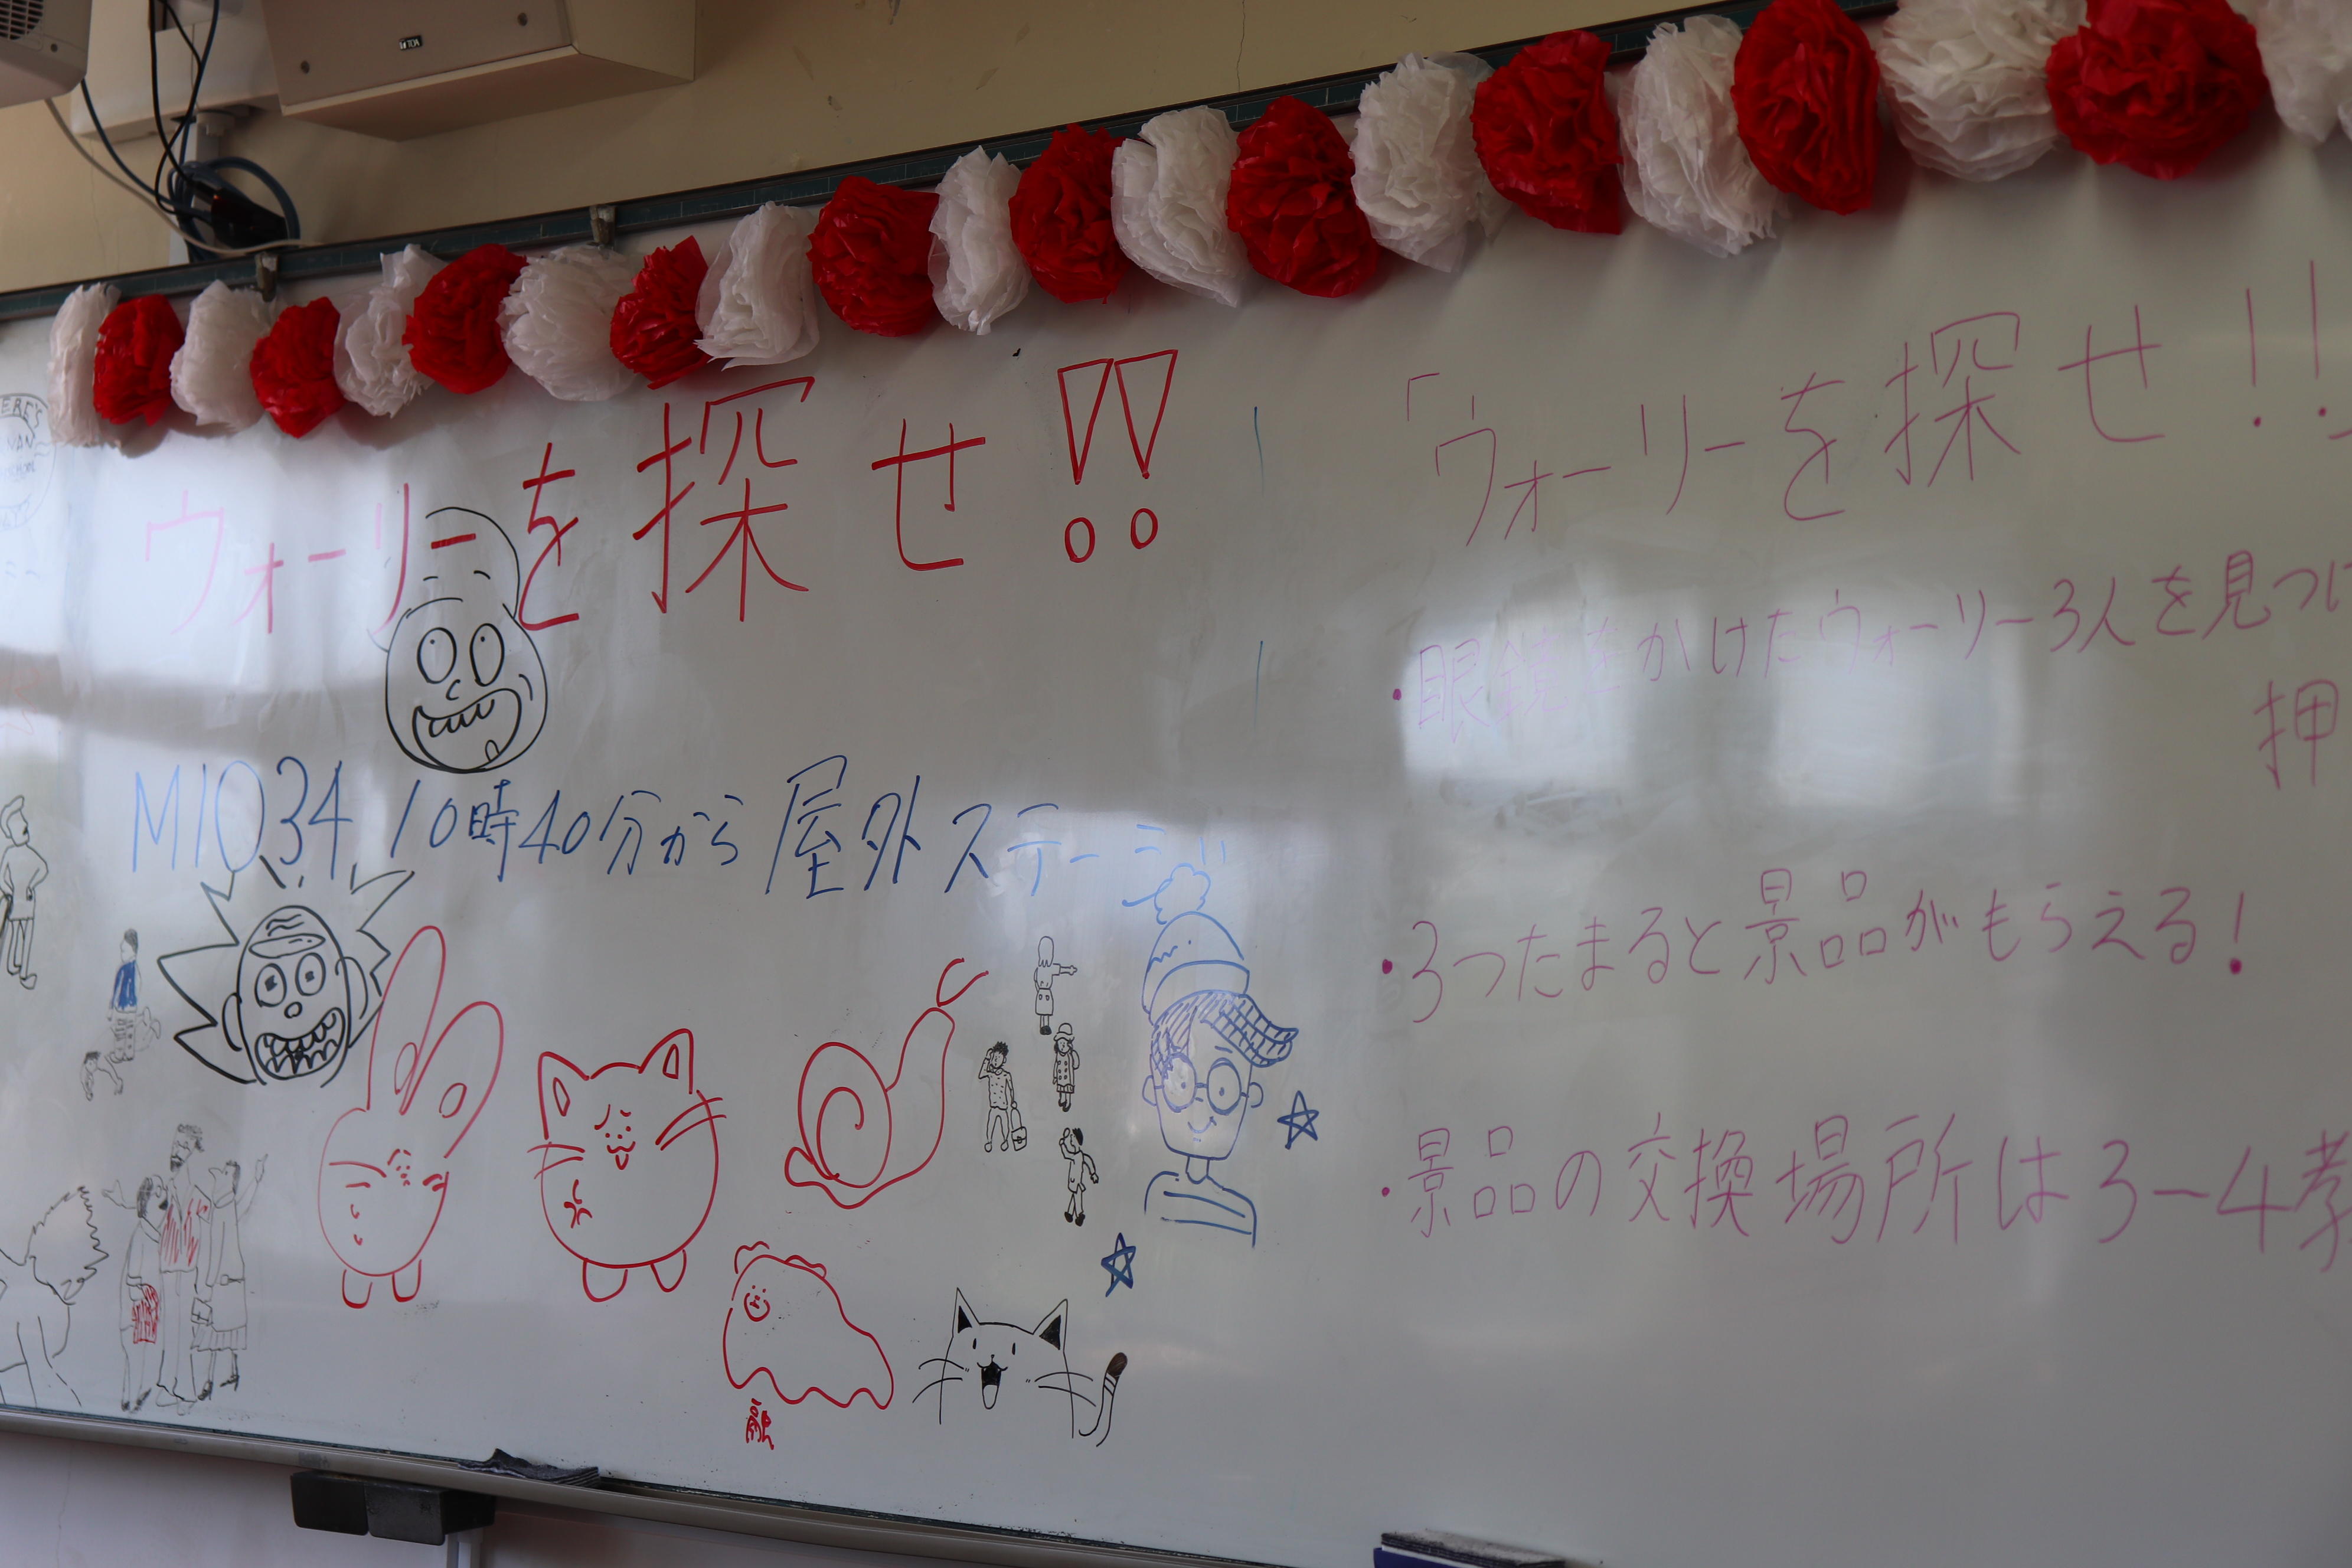 ウォーリーを探せ!!
MIO34 10時40分から屋外ステージ
「ウォーリーを探せ!!」
・眼鏡をかけたウォーリー3人を見つけ
押
・3つたまると景品がもらえる!
・景品の交換場所は3-4教